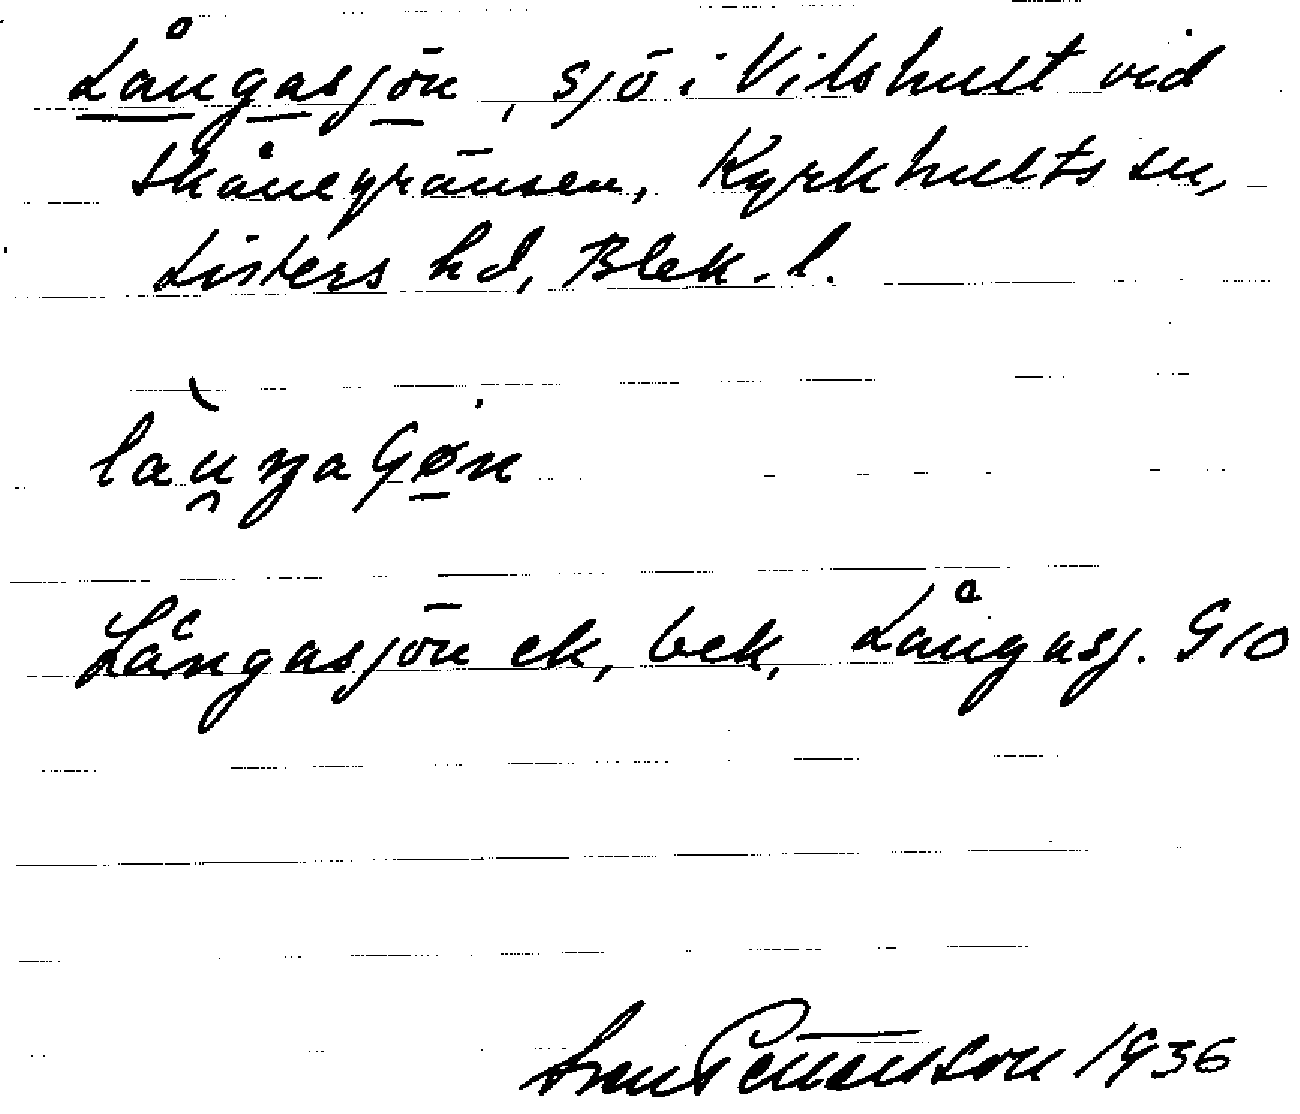 Långasjön, sjö i Vilshult vid
Skånegränsen, Kyrkhults sn,
Listers hd, Blek. l.
Långasjön ek, bek, Långasj. G10
Sven Pettersson 1936